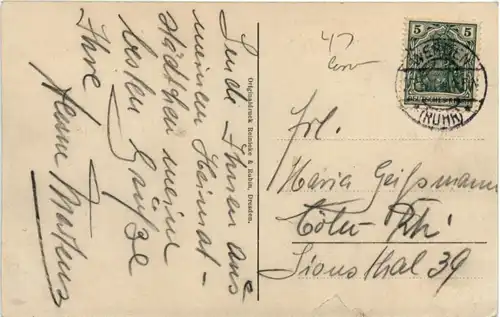 Sende Ihnen aus
meinem Heimat-
städtchen meine
besten Grüße
Ihre
Martens
Originaldruck Reinicke & Rubin, Dresden.
47
5 5
WERDEN
(RUHR)
Frl.
Maria Geißmann
Cöln Rh
Sionsthal 39